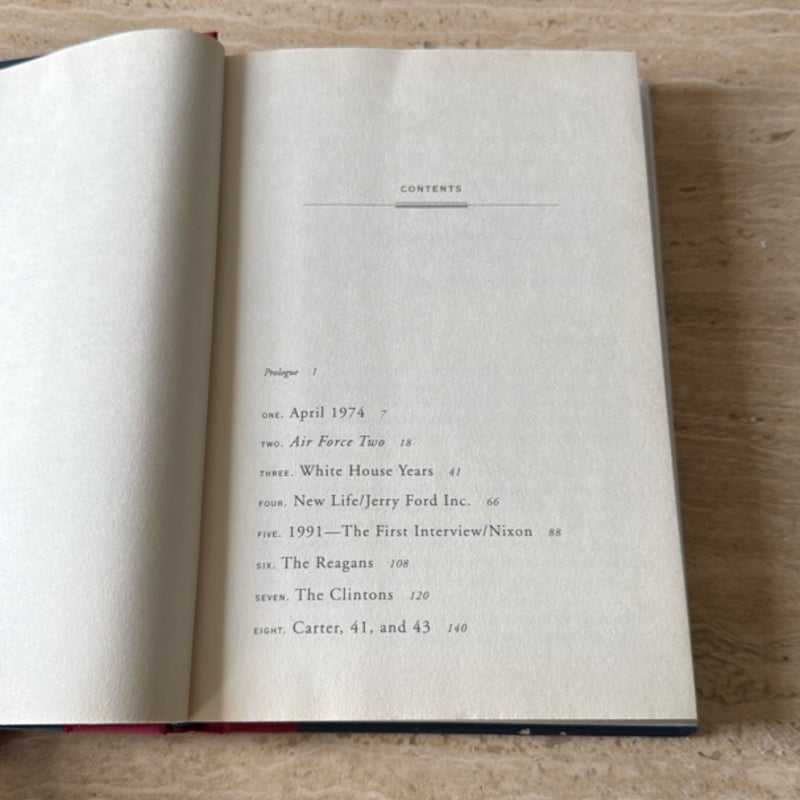 CONTENTS
Prologue 1
ONE. April 1974 7
TWO. Air Force Two 18
THREE. White House Years 41
FOUR. New Life/Jerry Ford Inc. 66
FIVE. 1991—The First Interview/Nixon 88
SIX. The Reagans 108
SEVEN. The Clintons 120
EIGHT. Carter, 41, and 43 140